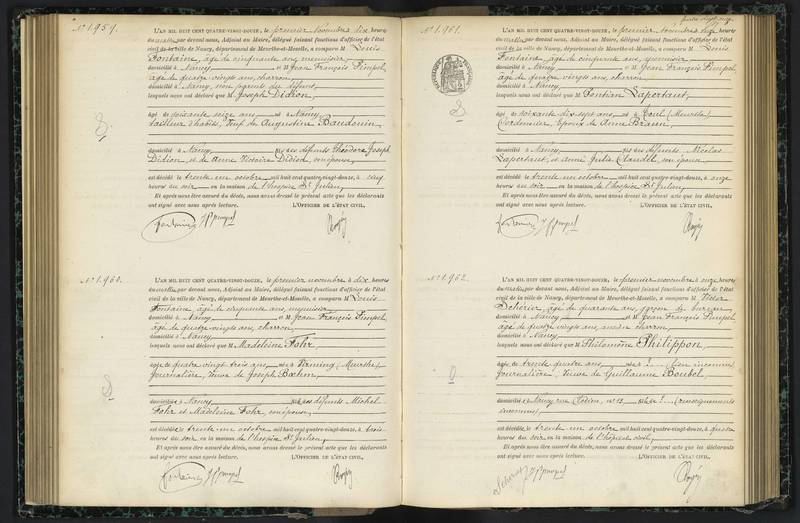 N° 1.959.
L'AN MIL HUIT CENT QUATRE-VINGT-DOUZE, le premier novembre dix, heures
du matin, par devant nous, Adjoint au Maire, délégué faisant fonctions d'officier de l'état
civil de la ville de Nancy, département de Meurthe-et-Moselle, a comparu M Louis
Fontaine, âgé de cinquante ans, menuisier,
domicilié à Nancy et M Jean François Pimpel,
âgé de quatre vingts ans, charron,
domicilié à Nancy, non parents du défunt,
lesquels nous ont déclaré que M Joseph Didion,
âgé de soixante seize ans, né à Nancy
tailleur d'habits, Veuf de Augustine Baudouin,
domicilié à Nancy, fils des défunts Théodore Joseph
Didion, et de Anne Victoire Didion, son épouse,
est décédé le trente un octobre mil huit cent quatre-vingt-douze, à cinq
heures du soir, en la maison de l'hospice St Julien,
Et après nous être assuré du décès, nous avons dressé le présent acte que les déclarants
ont signé avec nous après lecture. L'OFFICIER DE L'ÉTAT CIVIL,
Fontaine JF Pimpel
N° 1.960.
L'AN MIL HUIT CENT QUATRE-VINGT-DOUZE, le premier novembre à dix, heures
du matin, par devant nous, Adjoint au Maire, délégué faisant fonctions d'officier de l'état
civil de la ville de Nancy, département de Meurthe-et-Moselle, a comparu M Louis
Fontaine, âgé de cinquante ans, menuisier,
domicilié à Nancy et M Jean François Pimpel,
âgé de quatre vingts ans, charron,
domicilié à Nancy,
lesquels nous ont déclaré que M Madeleine Fohr,
âgée de quatre vingt trois ans, née à (Meurthe)
Journalière, Veuve de Joseph Bœhm,
domiciliée à Nancy, fille des défunts Michel
Fohr et Madeleine Fohr, son épouse,
est décédée le trente un octobre mil huit cent quatre-vingt-douze, à trois
heures du soir, en la maison de l'hospice St Julien,
Et après nous être assuré du décès, nous avons dressé le présent acte que les déclarants
ont signé avec nous après lecture. L'OFFICIER DE L'ÉTAT CIVIL,
Fontaine JF Pimpel
N° 1.961.
L'AN MIL HUIT CENT QUATRE-VINGT-DOUZE, le premier novembre onze, heures
du matin, par devant nous, Adjoint au Maire, délégué faisant fonctions d'officier de l'état
civil de la ville de Nancy, département de Meurthe-et-Moselle, a comparu M Louis
Fontaine, âgé de cinquante ans, menuisier,
domicilié à Nancy et M Jean François Pimpel,
âgé de quatre vingts ans, charron,
domicilié à Nancy,
lesquels nous ont déclaré que M Laportaut,
âgé de soixante dix sept ans, né à Toul (Meurthe)
Cordonnier, Epoux de Anne Braun,
domicilié à Nancy, fils des défunts Nicolas
Laportaut, et Anne Julie Claudel, son épouse
est décédé le trente un octobre mil huit cent quatre-vingt-douze, à onze
heures du soir, en la maison de l'hospice St Julien,
Et après nous être assuré du décès, nous avons dressé le présent acte que les déclarants
ont signé avec nous après lecture. L'OFFICIER DE L'ÉTAT CIVIL,
Fontaine JF Pimpel
N° 1.962.
L'AN MIL HUIT CENT QUATRE-VINGT-DOUZE, le premier novembre à onze, heures
du matin, par devant nous, Adjoint au Maire, délégué faisant fonctions d'officier de l'état
civil de la ville de Nancy, département de Meurthe-et-Moselle, a comparu M Victor
âgé de quarante ans, garçon de bureau
domicilié à Nancy et M Jean François Pimpel
âgé de quatre vingts ans, ancien charron
domicilié à Nancy
lesquels nous ont déclaré que M Philomène Philippon,
âgée de trente quatre ans, née à ?... (lieu inconnu)
Journalière, Veuve de Guillaume Boubel,
domiciliée à Nancy, rue n° 12, fille de ?... (renseignements
inconnus)
est décédée, le trente un octobre mil huit cent quatre-vingt-douze, à quatre
heures du soir, en la maison de l'hôpital civil,
Et après nous être assuré du décès, nous avons dressé le présent acte que les déclarants
ont signé avec nous après lecture. L'OFFICIER DE L'ÉTAT CIVIL,
JF Pimpel